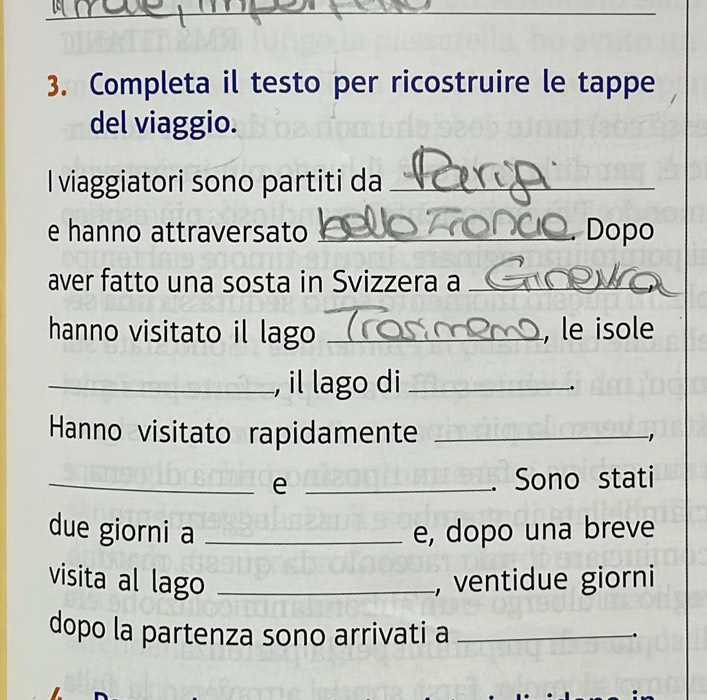 3. Completa il testo per ricostruire le tappe
del viaggio.
I viaggiatori sono partiti da Parigi
e hanno attraversato bella Francia. Dopo
aver fatto una sosta in Svizzera a Ginevra,
hanno visitato il lago Trasimeno, le isole
____________, il lago di ____________.
Hanno visitato rapidamente ____________,
____________ e ____________. Sono stati
due giorni a ____________ e, dopo una breve
visita al lago ____________, ventidue giorni
dopo la partenza sono arrivati a ____________.